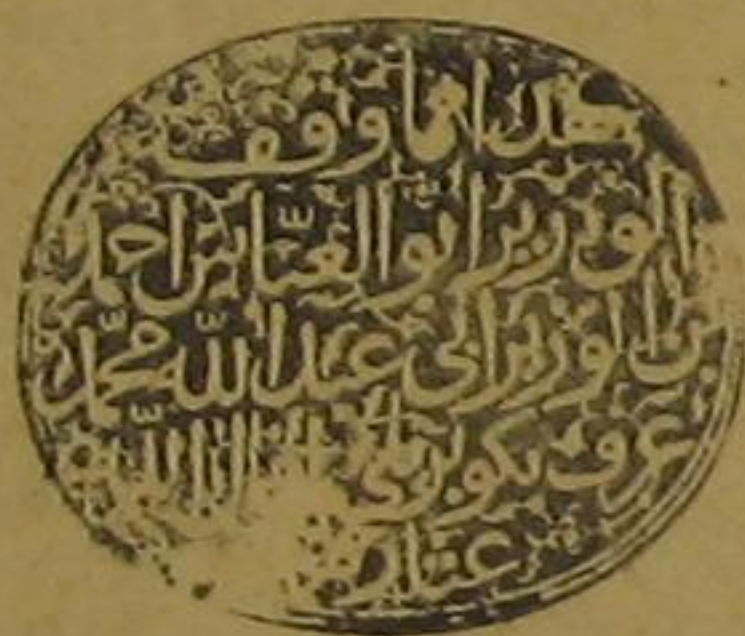 هذا ما وقف
الوزير ابو العباس احمد
بن الوزير ابي عبد الله محمد
عرف بكوبريلي الله
عثار